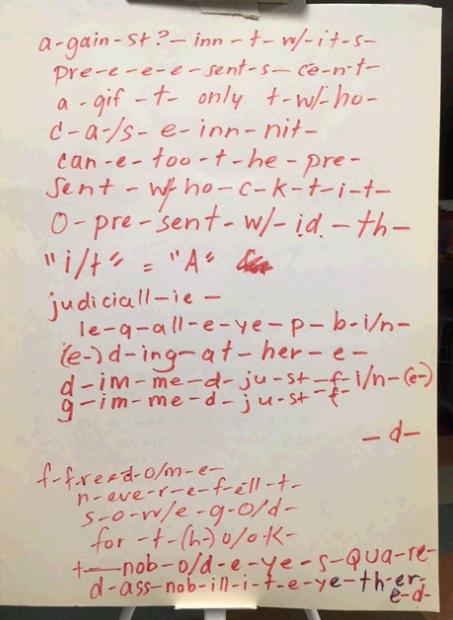 a-gain-st?-inn-t-w/-it-s-
pre-e-e-e-sent-s-ce-n-t-
a-gif-t- only t-w/-ho-
c-a-/s-e-inn-nit-
can-e-too-t-he-pre-
sent-w/-ho-c-k-t-i-t-
O-pre-sent-w/-id.-th-
"i/t" = "A"
judiciall-ie-
le-g-all-e-ye-p-b-i/n-
(e-)d-ing-at-her-e-
d-im-me-d-ju-st-f-i/n-(e-)
g-im-me-d-ju-st-f-
-d-
f-f-reed-o/m-e-
n-eve-r-e-f-ell-t-
s-o-w/e-g-o/d-
for-t-(h-)o/ok-
t—nob-o/d-e-ye-s-QUA-re-
d-ass-nob-ill-i-t-e-ye-th-er-
e-d-